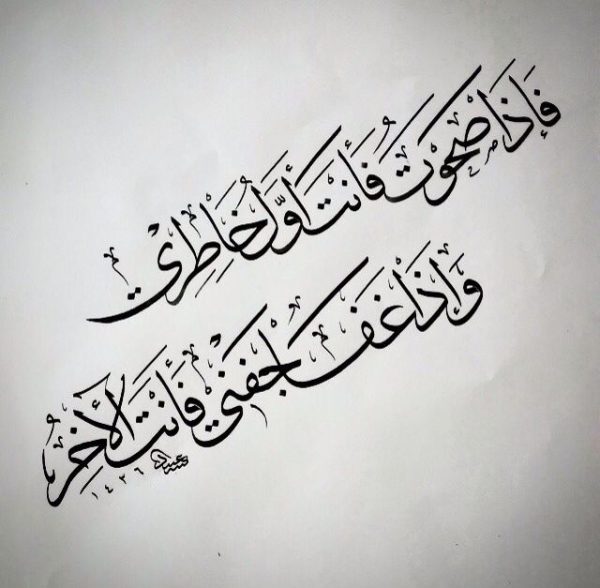 فَإِذَا صَحَوْتُ فَأَنْتَ أَوَّلُ خَاطِرِي
وَإِذَا غَفَا جَفْنِي فَأَنْتَ الْآخِرُ
١٤٢٦